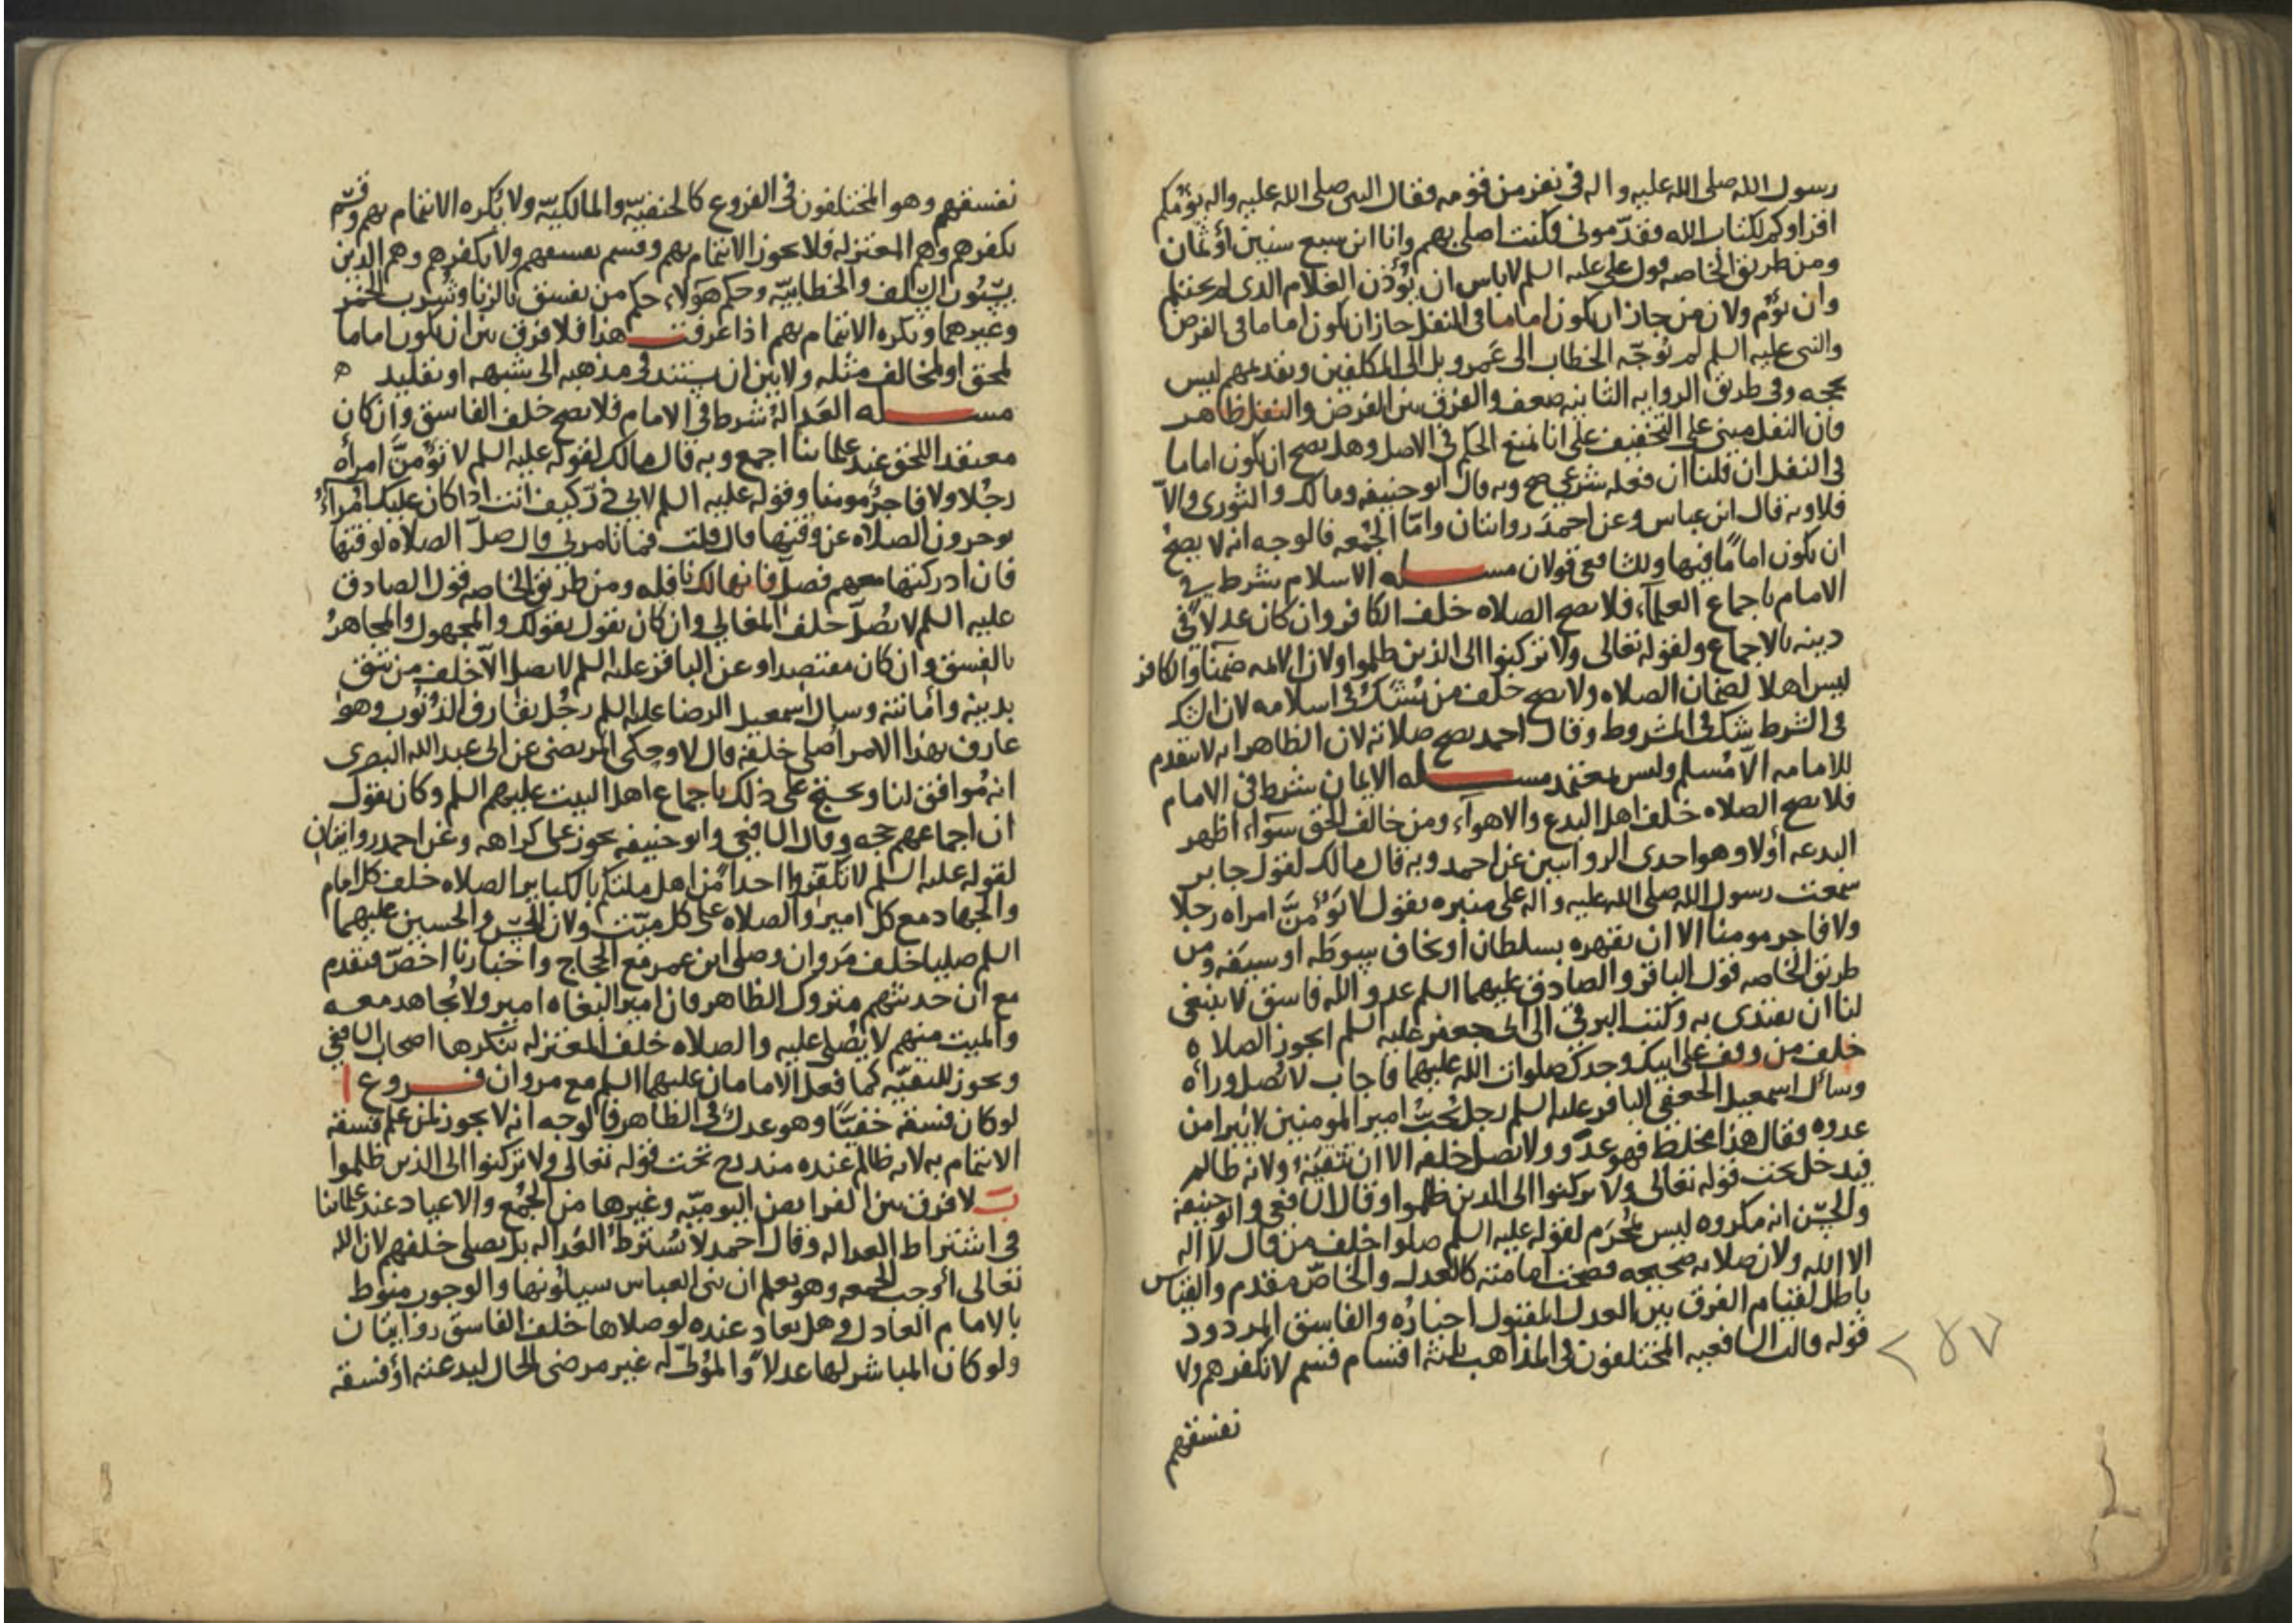 رسول الله صلى الله عليه واله فى نفر من قومه فقال النبى صلى الله عليه واله يؤمكم
اقراوكم لكتاب الله فقدّمونى فكنت اصلى بهم وانا ابن سبع سنين او ثمان
ومن طريق الخاصه قول على عليه السلم لا باس ان يؤذن الغلام الذى لم يحتلم
وان يؤم ولان من جاز ان يكون اماما فى النفل جاز ان يكون اماما فى الفرض
والنبى عليه السلم لم يوجّه الخطاب الى عَمرو بل الى المكلفين وتقديمهم ليس
بحجه وفى طريق الروايه الثانيه ضعف والفرق بين الفرض والنفل ظاهر
فان النفل مبنى على التخفيف على انا نمنع الحكم فى الاصل وهل يصح ان يكون اماما
فى النفل ان قلنا ان فعله شرعى صح وبه قال ابو حنيفه ومالك والثورى والاّ
فلا وبه قال ابن عباس وعن احمد روايتان وامّا الجُمعه فالوجه انه لا يصحّ
ان يكون امامًا فيها وللشافعى قولان مسـله الاسلام شرط فى
الامام باجماع العلمآء فلا تصح الصلاه خلف الكافر وان كان عدلاً فى
دينه بالاجماع ولقوله تعالى ولا تركنوا الى الذين ظلموا ولان الائمه ضمنآ والكافر
ليس اهلا لضمان الصلاه ولا تصح خلف من يشك فى اسلامه لان الشك
فى الشرط شك فى المشروط وقال احمد تصح صلاته لان الظاهر انه لا يتقدم
للامامه الاّ مُسلم وليس بمعتمد مسـله الايمان شرط فى الامام
فلا تصح الصلاه خلف اهل البدع والاهوآء ومن خالف الحق سوآء اظهر
البدعه اولا وهو احدى الروايتين عن احمد وبه قال مالك لقول جابر
سمعت رسول الله صلى الله عليه واله على منبره يقول لا تؤمنّ امراه رجلا
ولا فاجر مومنا الا ان يقهره بسلطان او يخاف سوطَه او سيفه ومن
طريق الخاصه قول الباقر والصادق عليهما السلم عدو الله فاسق لا ينبغى
لنا ان نقتدى به وكتب البرقى الى ابى جعفر عليه السلم ايجوز الصلاه
خلف من وقف على ابيك وجدك صلوات الله عليهما فاجاب لا تُصل ورآه
وسأل اسمعيل الجعفى الباقر عليه السلم رجل يُحبّ امير المومنين لا يبرا من
عدوه فقال هذا مخلط فهو عدوّ ولا تصل خلفه الا ان تتقيَهُ ولانه ظالم
فيدخل تحت قوله تعالى ولا تركنوا الى الذين ظلموا وقال الشافعى وابو حنيفة
والحسن انه مكروه ليس بمُحرم لقوله عليه السلم صلوا خلف من قال لا اله
الا الله ولان صلاته صحيحه فصحت امامته كالعدل والخاصّ مقدم والقياس
باطل لقيام الفرق بين العدل المقبول اخباره والفاسق المردود
قوله قالت الشافعيه المختلفون فى المذاهب ثلثة اقسام قسم لا نكفرهم ولا
نفسقهم
٢٨٧
نفسقهم وهو المختلفون فى الفروع كالحنفيّه والمالكيّه ولا يُكره الائتمام بهم وقسم
نكفرهم وهم المعتزله فلا يجوز الائتمام بهم وقسم نفسقهم ولا نكفرهم وهم الذين
يسُبّون السّلف والخطابيّه وحكم هَولاء حكم من يفسق بالزنا وشرب الخمر
وغيرهما ويكره الائتمام بهم اذا عرفت هذا فلا فرق بين ان يكون اماما
لمحق او لمخالف مثله ولا بين ان يستند فى مذهبه الى شبهه او تقليد ه
مسـله العَدالهُ شرط فى الامام فلا تصح خلف الفاسق وان كان
معتقدا للحق عند علمائنا اجمع وبه قال مالك لقوله عليه السلم لا تؤمنّ امرأه
رجُلا ولا فاجرٌ مومنا وقوله عليه السلم لابى ذر كيف انت اذا كان عليك امرآء
يوخرون الصلاه عن وقتها قال قلت فما تامرنى قال صلّ الصلاه لوقتها
فان ادركتها معهم فصلّ فانها لك نافله ومن طريق الخاصه قول الصادق
عليه السلم لا تُصلّ خلف الغالى وان كان يقول بقولك والمجهول والمجاهرُ
بالفسق وان كان مقتصدا وعن الباقر عليه السلم لا تصل الاّ خلف من تثق
بدينه وأمانته وسال اسمعيل الرضا عليه السلم رجُل يقارف الذنوب وهو
عارف بهذا الامر اصلى خلفه قال لا وحكى المرتضى عن ابى عبد الله البصرى
انه مُوافق لنا ويحتج على ذلك باجماع اهل البيت عليهم السلم وكان يقول
ان اجماعهم حجه وقال الشافعى وابو حنيفه يجوز على كراهه وعن احمد روايتان
لقوله عليه السلم لا تكفّروا احداً من اهل ملتكم بالكباير الصلاه خلف كل امام
والجهاد مع كل امير والصلاه على كل ميّت ولان الحسن والحسين عليهما
السلم صليا خلف مَروان وصلى ابن عمر مع الحجاج واخبارنا اخصّ فتقدم
مع ان حديثهم متروك الظاهر فان امير البغاه امير ولا يُجاهد معه
والميت منهم لا يُصلى عليه والصلاه خلف المعتزله ينكرها اصحاب الشافعى
ويجوز للتقيّه كما فعل الامامان عليهما السلم مع مروان فـروع ا
لو كان فسقه خفيّاً وهو عدل فى الظاهر فالوجه انه لا يجوز لمن علم فسقه
الائتمام به لانه ظالم عنده مندرج تحت قوله تعالى ولا تركنوا الى الذين ظلموا
ب لا فرق بين الفرايض اليوميّه وغيرها من الجُمع والاعياد عند علمائنا
فى اشتراط العداله وقال احمد لا تُشترط العَداله بل يصلى خلفهم لان الله
تعالى أوجب الجمعه وهو يعلم ان بنى العباس سيلُونها والوجوب منوط
بالامام العادل وهل تعاد عنده لو صلاها خلف الفاسق روايتان
ولو كان المباشر لها عدلاً والمؤلىّ له غير مرضى الحال لبدعته أو فسقه